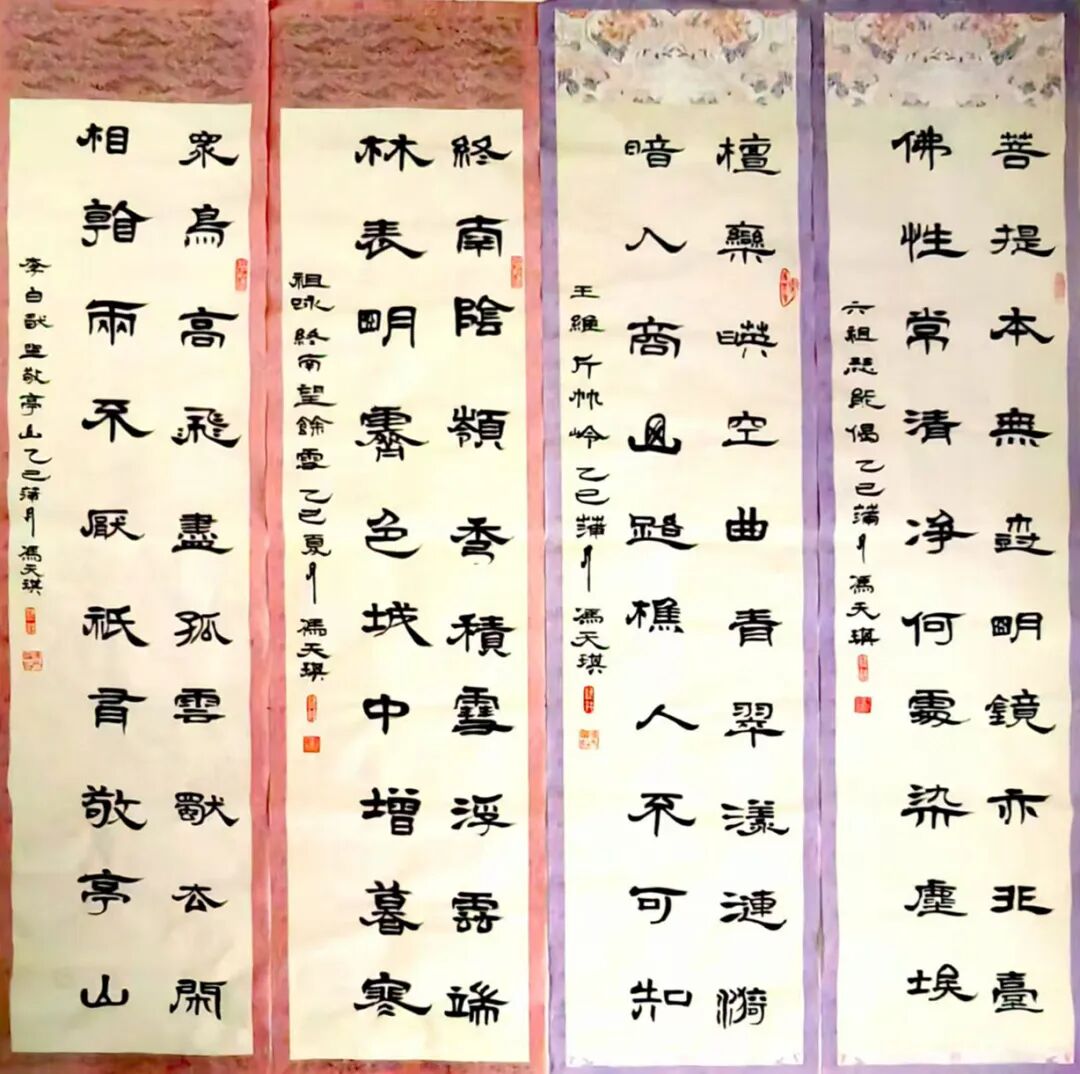 菩提本無尌明鏡亦非臺
佛性常清净何處染塵埃
六祖慧能偈 乙巳蒲月 馮天琪
檀欒暎空曲青翠漾漣漪
暗入商山路樵人不可知
王維斤竹岭 乙巳蒲月 馮天琪
終南陰嶺秀積雪浮雲端
林表明霽色城中增暮寒
祖咏終南望餘雪 乙巳夏月 馮天琪
衆鳥高飛盡孤雲獨去閑
相看兩不厭祇有敬亭山
李白獨坐敬亭山 乙巳蒲月 馮天琪